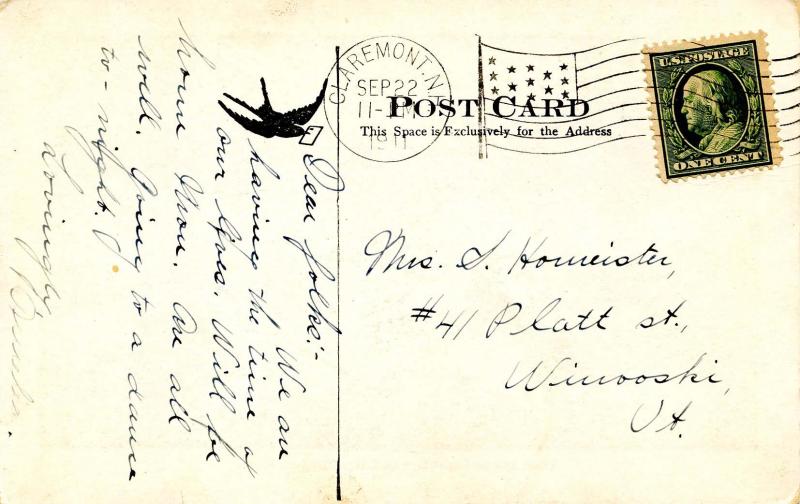 CLAREMONT, N.
SEP 22
11-
1911
POST CARD
This Space is Exclusively for the Address
U.S. POSTAGE
ONE CENT
Dear folks:-
We are
having the time of
our lives. Will be
home Mon. Are all
well. Going to a dance
to-night.
Lovingly
Mrs. S. Homeister,
#41 Platt st.,
Winooski,
Vt.